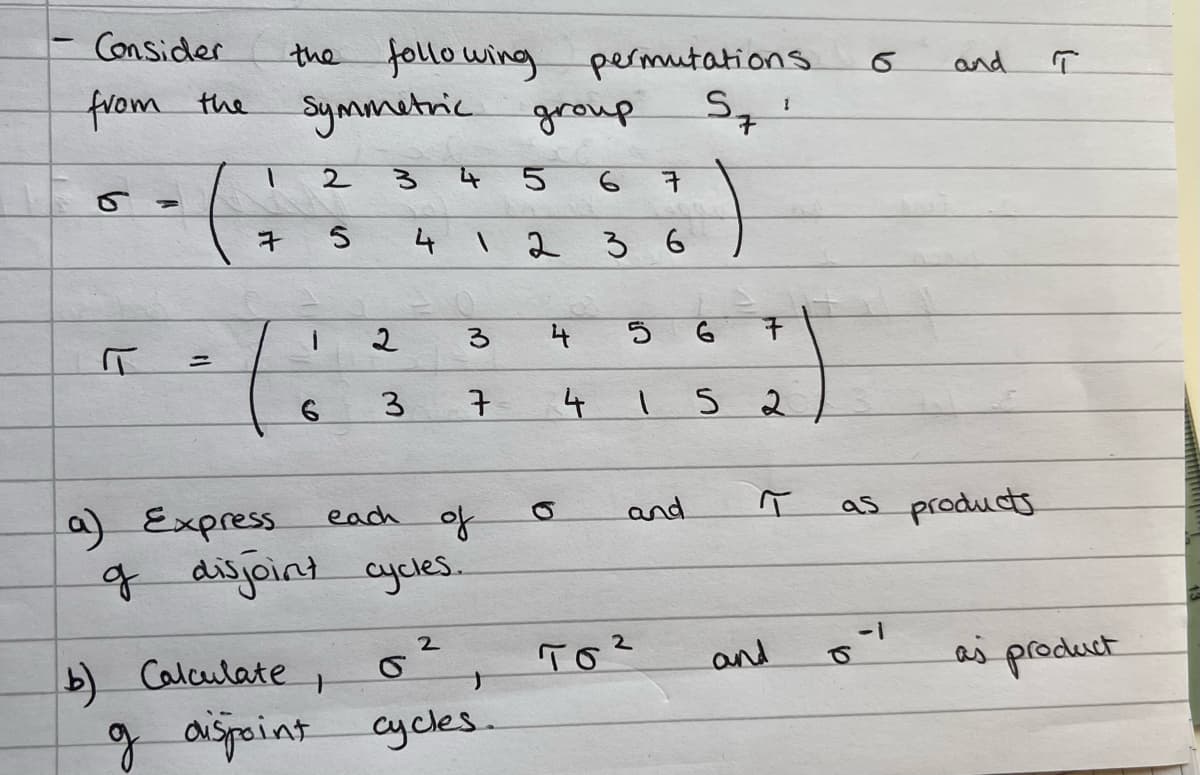 - Consider the following permutations σ and τ
from the symmetric group S₇ :
1 2 3 4 5 6 7
σ =
7 5 4 1 2 3 6
1 2 3 4 5 6 7
τ =
6 3 7 4 1 5 2
a) Express each of σ and τ as products
of disjoint cycles.
b) Calculate, σ², τσ² and σ⁻¹ as product
of disjoint cycles.